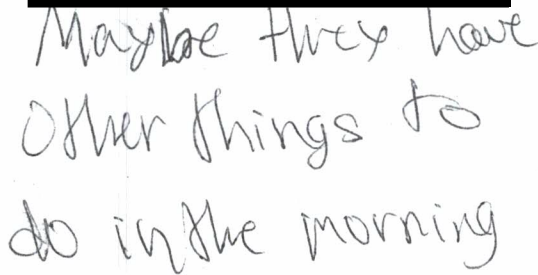 Maybe they have
Other things to
do in the morning